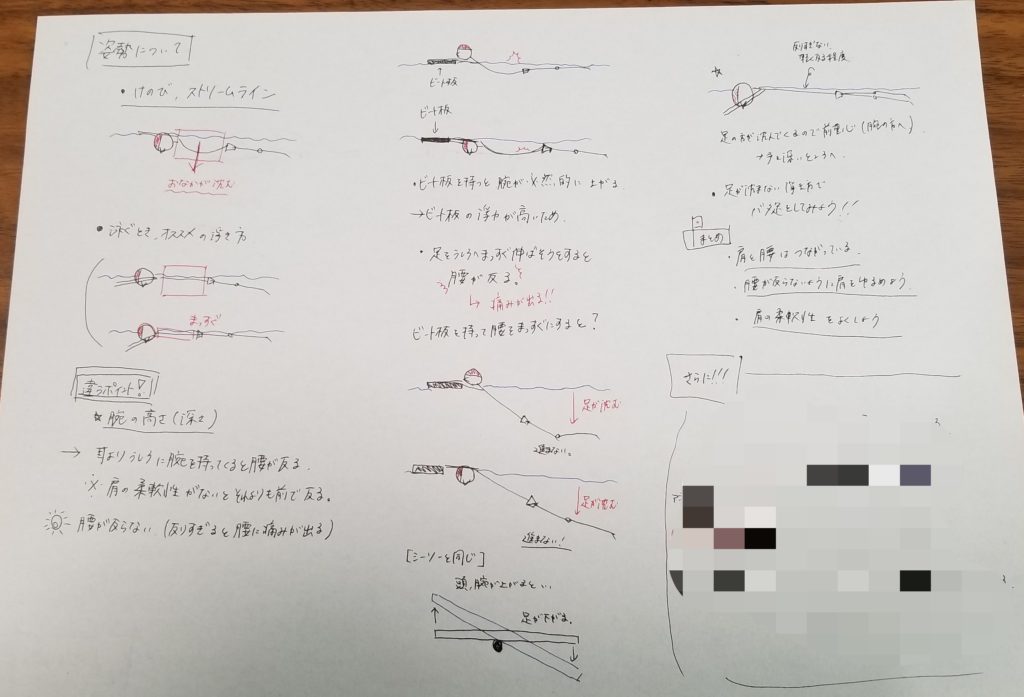 姿勢について
・けのび、ストリームライン
おなかが沈む
・泳ぐとき、オススメの浮き方
まっすぐ
違うポイント!
☆腕の高さ(深さ)
→ 耳よりうしろに腕を持ってくると腰が反る。
※肩の柔軟性がないとそれよりも前で反る。
腰が反らない (反りすぎると腰に痛みが出る)
ビート板
ビート板
・ビート板を持つと腕が必然的に上がる
→ビート板の浮力が高いため。
・足をうしろへまっすぐ伸ばそうとすると
腰が反る。
↳ 痛みが出る!!
ビート板を持って腰をまっすぐにすると?
足が沈む
進まない。
足が沈む
進まない!
[シーソーと同じ]
頭、腕が上がると...
足が下がる。
反りすぎない
軽く反る程度
☆
足の方が沈んでくるので前重心(腕の方へ)
ナナメ深いところへ
・足が沈まない浮き方で
バタ足をしてみよう!!
まとめ
・肩と腰はつながっている。
・腰が反らないように肩をゆるめよう。
・肩の柔軟性をよくしよう
さらに!!!